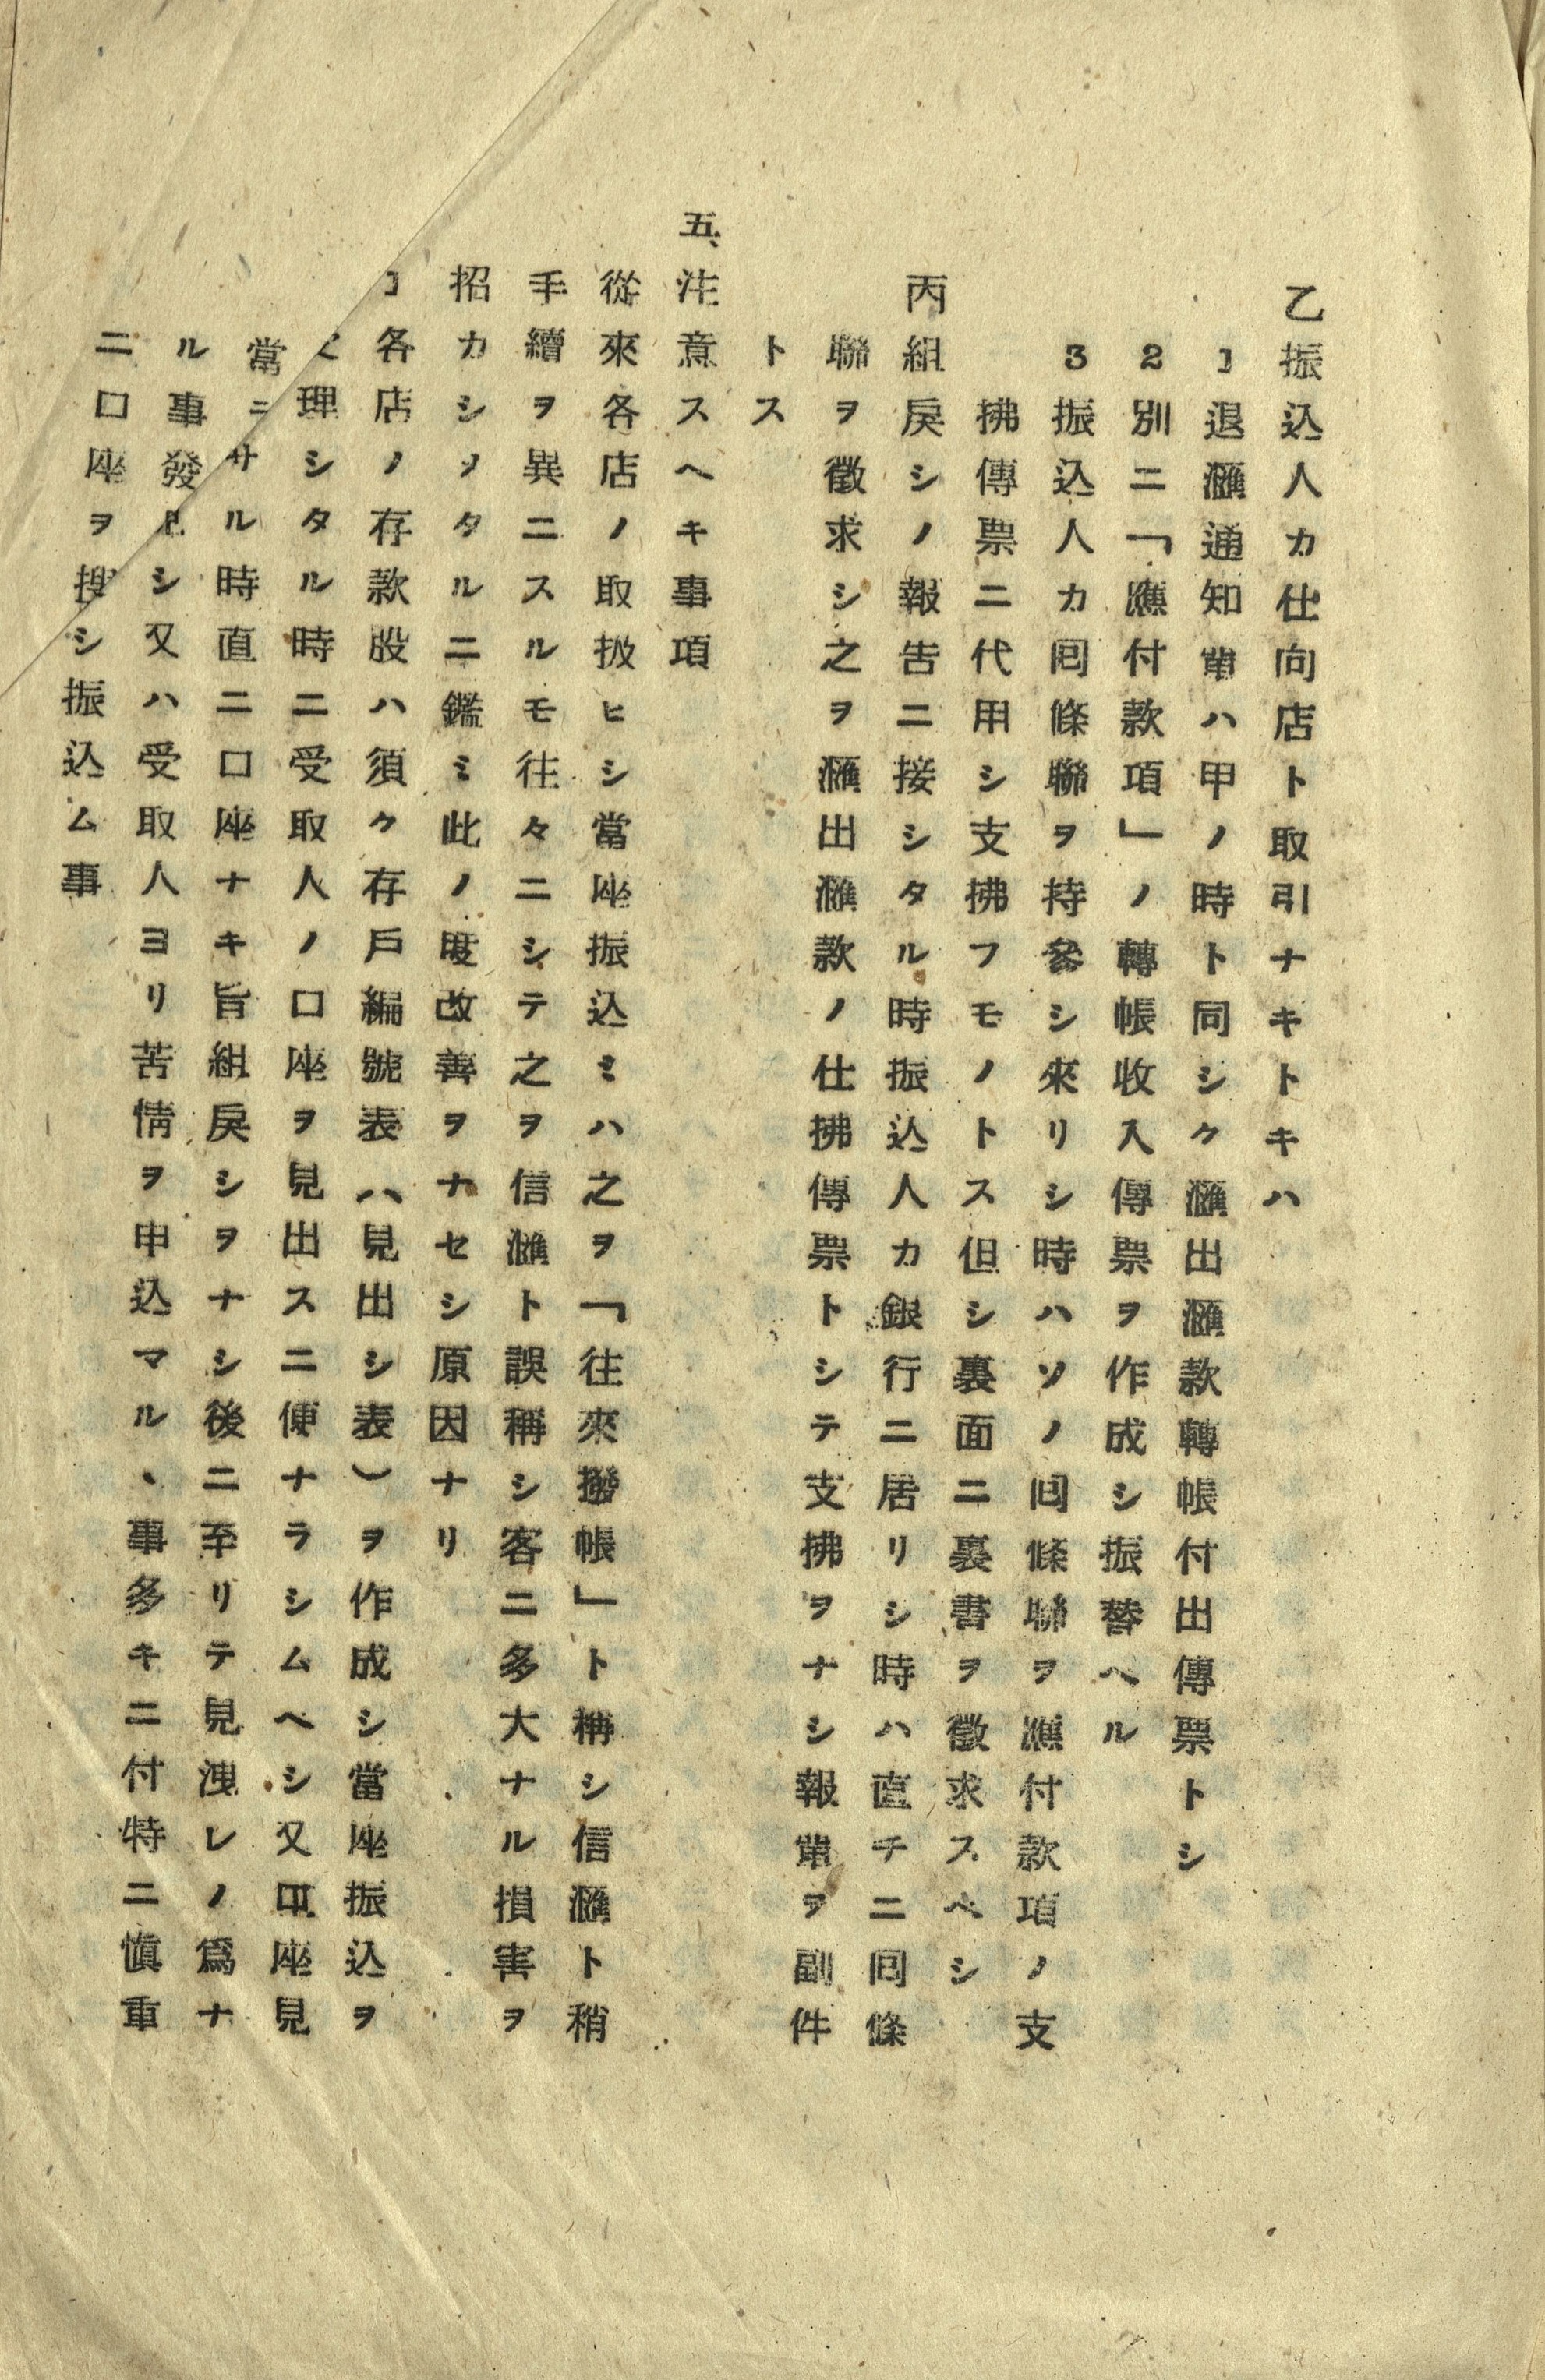 乙振込人カ仕向店ト取引ナキトキハ
1退滙通知單ハ甲ノ時ト同シク滙出滙款轉帳付出傳票トシ
2別ニ「應付款項」ノ轉帳收入傳票ヲ作成シ振替ヘル
3振込人カ囘條聯ヲ持參シ來リシ時ハソノ囘條聯ヲ應付款項ノ支
拂傳票ニ代用シ支拂フモノトス但シ裏面ニ裏書ヲ徵求スベシ
丙組戾シノ報告ニ接シタル時振込人カ銀行ニ居リシ時ハ直チニ囘條
聯ヲ徵求シ之ヲ滙出滙款ノ仕拂傳票トシテ支拂ヲナシ報單ヲ副件
トス
五、注意スヘキ事項
從來各店ノ取扱ヒシ當座振込ミハ之ヲ「往來撥帳」ト稱シ信滙ト稍
手續ヲ異ニスルモ往々ニシテ之ヲ信滙ト誤稱シ客ニ多大ナル損害ヲ
招カシメタルニ鑑ミ此ノ度改善ヲナセシ原因ナリ
1各店ノ存款股ハ須ク存戶編號表(見出シ表)ヲ作成シ當座振込ヲ
理シタル時ニ受取人ノ口座ヲ見出スニ便ナラシムベシ又口座見
當ラサル時直ニ口座ナキ旨組戾シヲナシ後ニ至リテ見洩レノ爲ナ
ル事發見シ又ハ受取人ヨリ苦情ヲ申込マルヽ事多キニ付特ニ愼重
ニ口座ヲ搜シ振込ム事